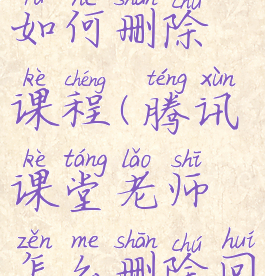 rú hé shān chú
如何删除
kè chéng téng xùn
课程(腾讯
kè táng lǎo shī
课堂老师
zěn me shān chú huí
怎么删除回